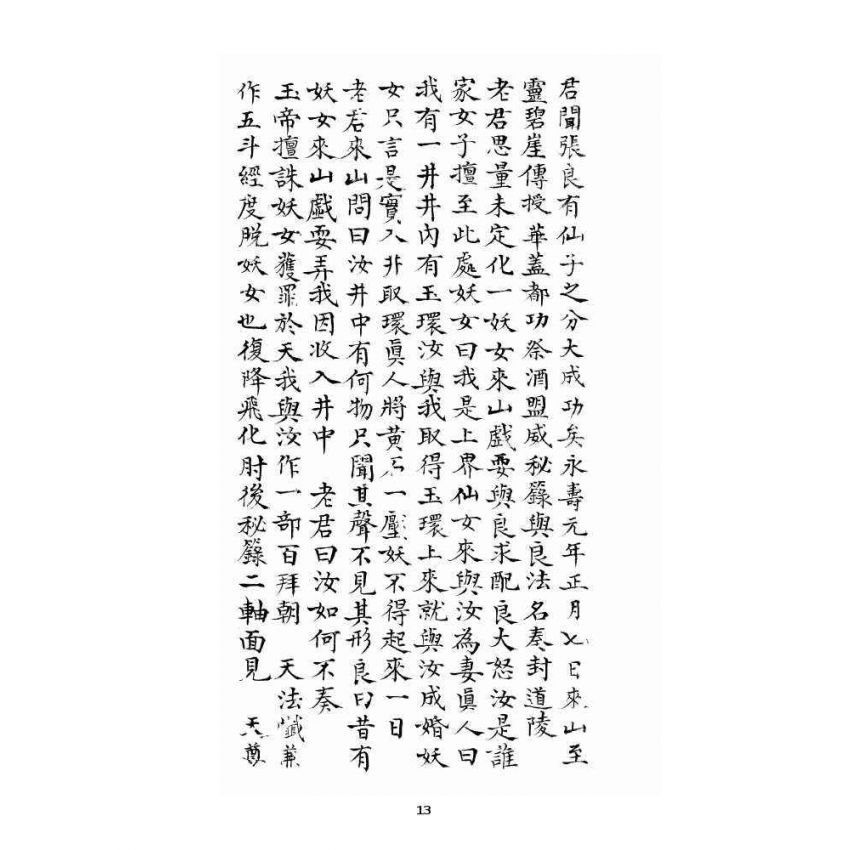 君聞張良有仙子之分大成功矣永壽元年正月七日來山至
靈碧崖傳授華蓋都功祭酒盟威秘籙與良法名奏封道陵
老君思量未定化一妖女來山戲耍與良求配良大怒汝是誰
家女子擅至此處妖女曰我是上界仙女來與汝為妻眞人曰
我有一井井內有玉環汝與我取得玉環上來就與汝成婚妖
女只言是實入井取環眞人將黄石一壓妖不得起來一日
老君來山問曰汝井中有何物只聞其聲不見其形良曰昔有
妖女來山戲耍弄我因收入井中 老君曰汝如何不奏
玉帝擅誅妖女獲罪於天我與汝作一部百拜朝 天法懺兼
作五斗經度脫妖女也復降飛化肘後秘籙二軸面見 天尊
13